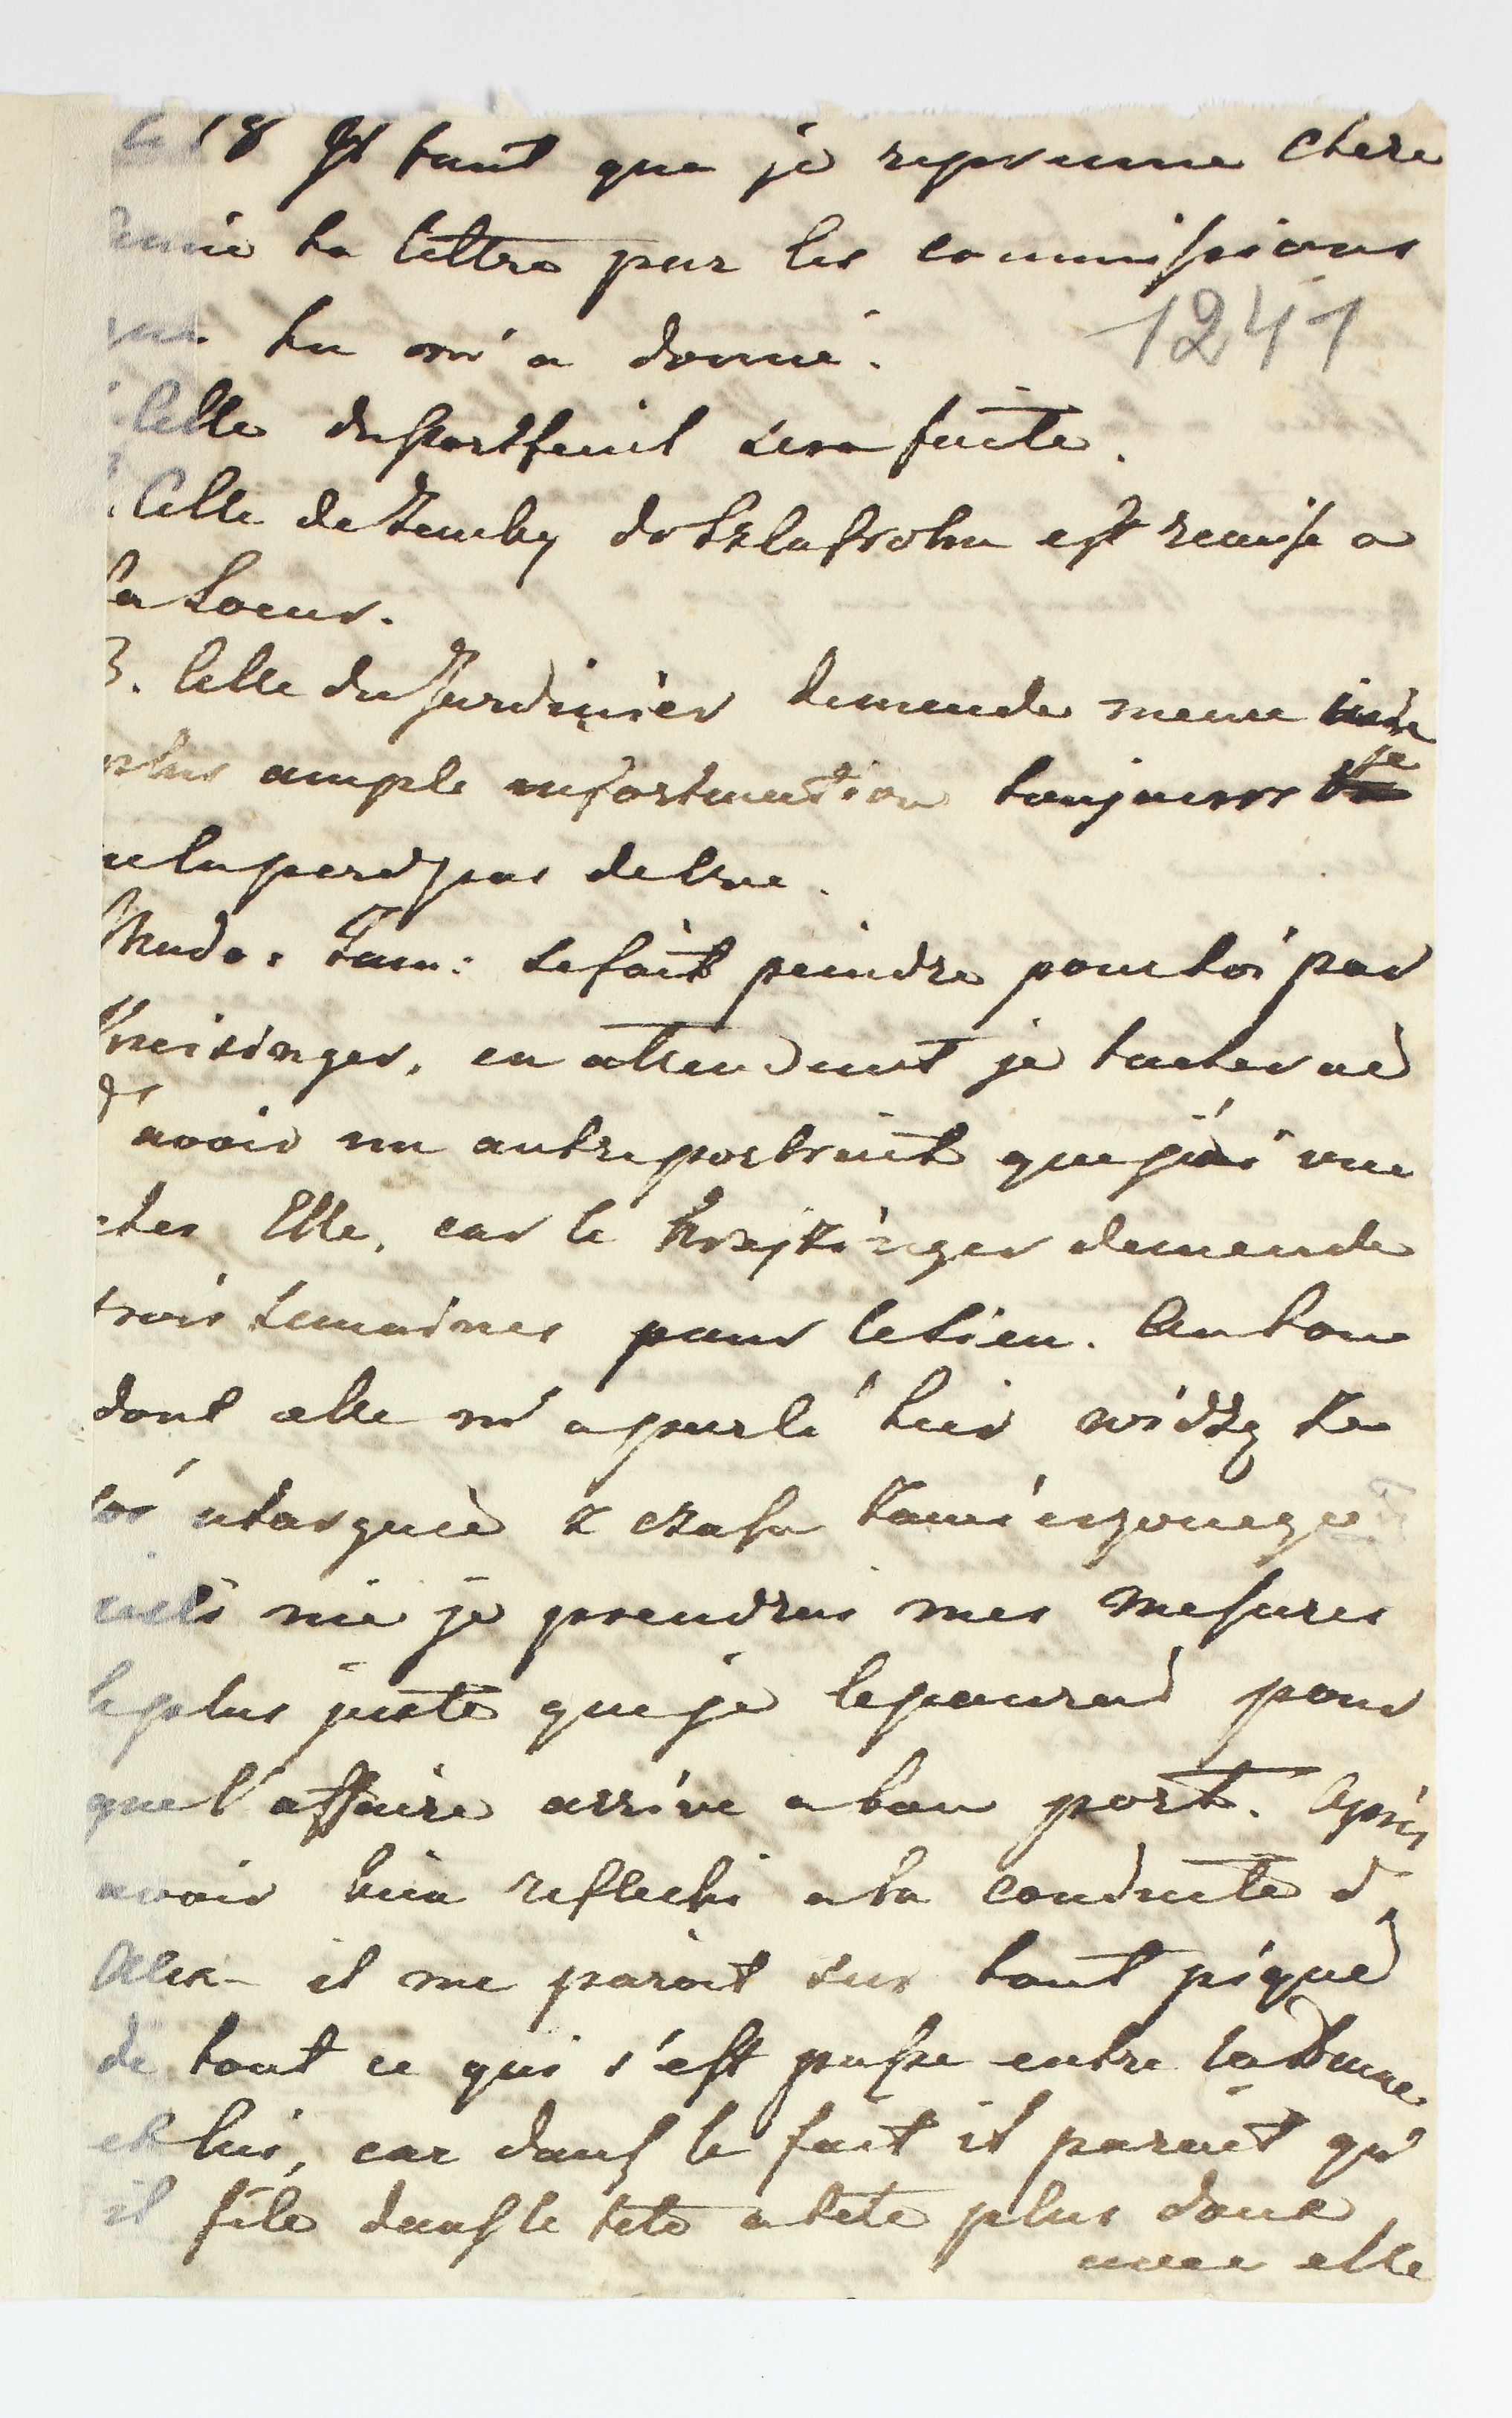 Le 18 Il faut que je reprenne chere
amie ta lettre pur les commissions
que tu m'a donné.
1241
Celle du portfeuil sera faite.
Celle de Zemby do Szlafroku est remise a
ta Soeur.
3. Celle du Jardinier demande meme une
plus ample information toujours je
ne la perd pas de vue.
Mada: Zam: se fait peindre pour toi par
Kreisinger, en attendant je tacherai
d'avoir un autre portrait que j'ai vue
chez Elle, car le Krajzinger demende
trois semaines pour le sien. Au tour
dont elle m'a parlé hier widzę ze
coś utarguie z czasu zamierzonego
ieśli nie je prendrai mes mesures
le plus juste que je le pourai pour
que l'affaire arrive a bon port. Après
avoir bien reflechi a la conduite d'
Alex- il me paroit sur tout piqué
de tout ce qui s'est passe entre la Dame
et lui, car dans le fait il parait qu'
il file dans le tete a tete plus doux
avec elle